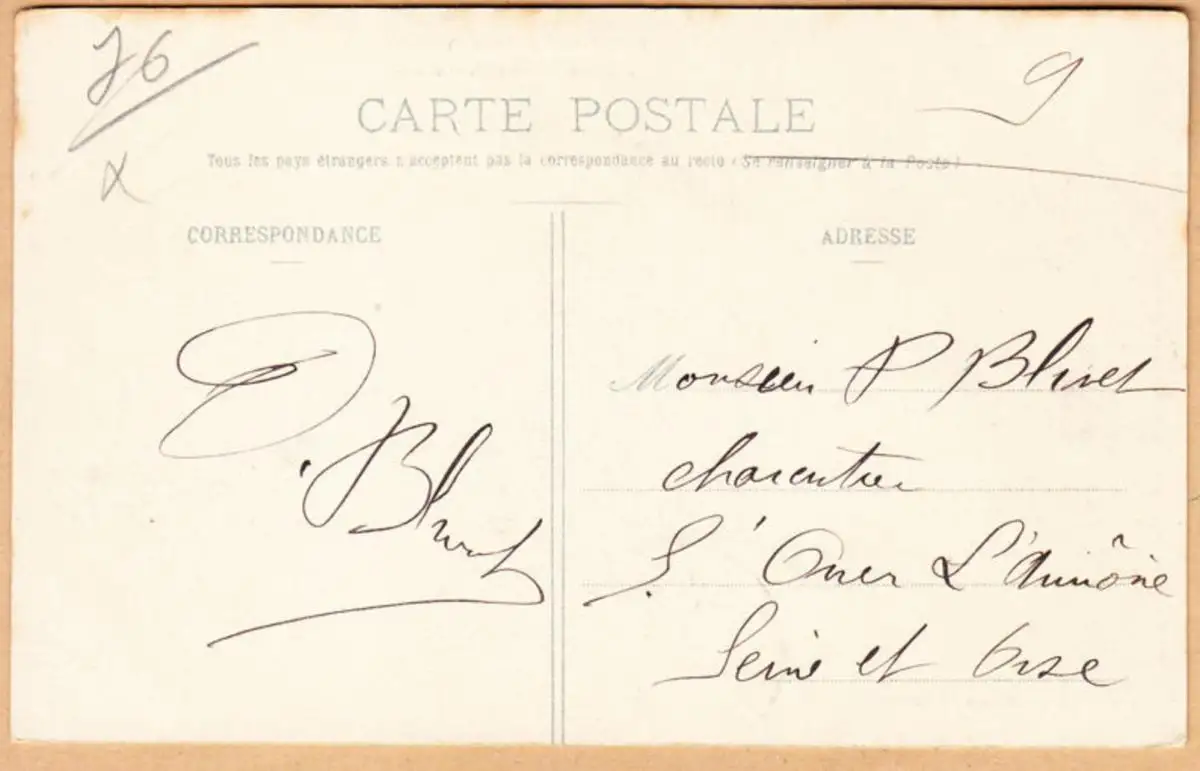 76
9
CARTE POSTALE
Tous les pays étrangers n'acceptent pas la correspondance au recto (Se renseigner à la Poste)
x
CORRESPONDANCE
ADRESSE
Monsieur P Blivet
charcutier
St Ouen L'aumône
Seine et Oise
Blivet